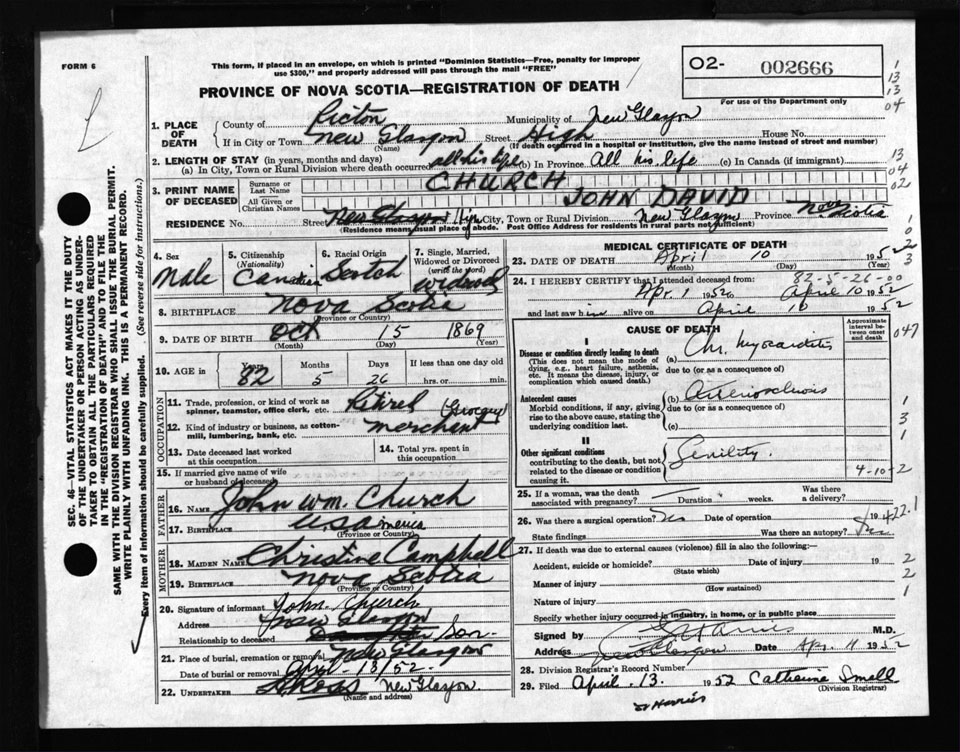 FORM 6
This form, if placed in an envelope, on which is printed "Dominion Statistics—Free, penalty for improper
use $300," and properly addressed will pass through the mail "FREE"
PROVINCE OF NOVA SCOTIA—REGISTRATION OF DEATH
O2- 002666
For use of the Department only
1. PLACE OF DEATH
County of Pictou Municipality of New Glasgow
If in City or Town New Glasgow Street High House No.
(Name) (If death occurred in a hospital or institution, give the name instead of street and number)
2. LENGTH OF STAY (in years, months and days)
(a) In City, Town or Rural Division where death occurred all his life (b) In Province All his life (c) In Canada (if immigrant)
3. PRINT NAME OF DECEASED
Surname or Last Name CHURCH
All Given or Christian Names JOHN DAVID
RESIDENCE No. Street New Glasgow City, Town or Rural Division New Glasgow Province Nova Scotia
(Residence means usual place of abode. Post Office Address for residents in rural parts not sufficient)
4. Sex Male
5. Citizenship (Nationality) Canadian
6. Racial Origin Scotch
7. Single, Married, Widowed or Divorced (write the word) widowed
8. BIRTHPLACE Nova Scotia
(Province or Country)
9. DATE OF BIRTH Oct 15 1869
(Month) (Day) (Year)
10. AGE in Years 82 Months 5 Days 26 If less than one day old hrs. or min.
OCCUPATION
11. Trade, profession, or kind of work as
spinner, teamster, office clerk, etc. Retired (Grocery
12. Kind of industry or business, as cotton-
mill, lumbering, bank, etc. merchant
13. Date deceased last worked
at this occupation
14. Total yrs. spent in
this occupation
15. If married give name of wife
or husband of deceased
FATHER
16. NAME John Wm. Church
17. BIRTHPLACE U.S. America
(Province or Country)
MOTHER
18. MAIDEN NAME Christine Campbell
19. BIRTHPLACE Nova Scotia
(Province or Country)
20. Signature of informant John Church
Address New Glasgow
Relationship to deceased Daughter Son
21. Place of burial, cremation or removal New Glasgow
Date of burial or removal April 13/52.
22. UNDERTAKER New Glasgow.
(Name and address)
MEDICAL CERTIFICATE OF DEATH
23. DATE OF DEATH April 10 1952
(Month) (Day) (Year)
82-5-26-00
24. I HEREBY CERTIFY that I attended deceased from:
Apr. 1 1952 to April 10 1952
and last saw him alive on April 10 1952
CAUSE OF DEATH
Approximate interval between onset and death
I
Disease or condition directly leading to death
(This does not mean the mode of
dying, e.g., heart failure, asthenia,
etc. It means the disease, injury, or
complication which caused death.)
(a) Chr. Myocarditis
due to (or as a consequence of)
Antecedent causes
Morbid conditions, if any, giving
rise to the above cause, stating the
underlying condition last.
(b) Arteriosclerosis
due to (or as a consequence of)
(c)
II
Other significant conditions
contributing to the death, but not
related to the disease or condition
causing it.
Senility.
4-10-2
25. If a woman, was the death
associated with pregnancy? Duration weeks. Was there
a delivery?
26. Was there a surgical operation? Date of operation 19
State findings Was there an autopsy?
27. If death was due to external causes (violence) fill in also the following:—
Accident, suicide or homicide? Date of injury 19
(State which)
Manner of injury
(How sustained)
Nature of injury
Specify whether injury occurred in industry, in home, or in public place
Signed by M.D.
Address New Glasgow Date Apr. 11 1952
28. Division Registrar's Record Number
29. Filed April. 13. 1952 Catherine Small
(Division Registrar)
SEC. 46—VITAL STATISTICS ACT MAKES IT THE DUTY
OF THE UNDERTAKER OR PERSON ACTING AS UNDER-
TAKER TO OBTAIN ALL THE PARTICULARS REQUIRED
IN THE "REGISTRATION OF DEATH" AND TO FILE THE
SAME WITH THE DIVISION REGISTRAR WHO SHALL ISSUE THE BURIAL PERMIT.
WRITE PLAINLY WITH UNFADING INK. THIS IS A PERMANENT RECORD.
Every item of information should be carefully supplied. (See reverse side for instructions.)
1
13
13
04
13
04
02
047
1
3
1
2
2
1